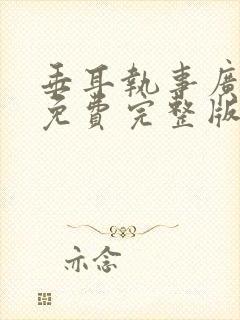 垂耳執事廣
免費完整版
亦念